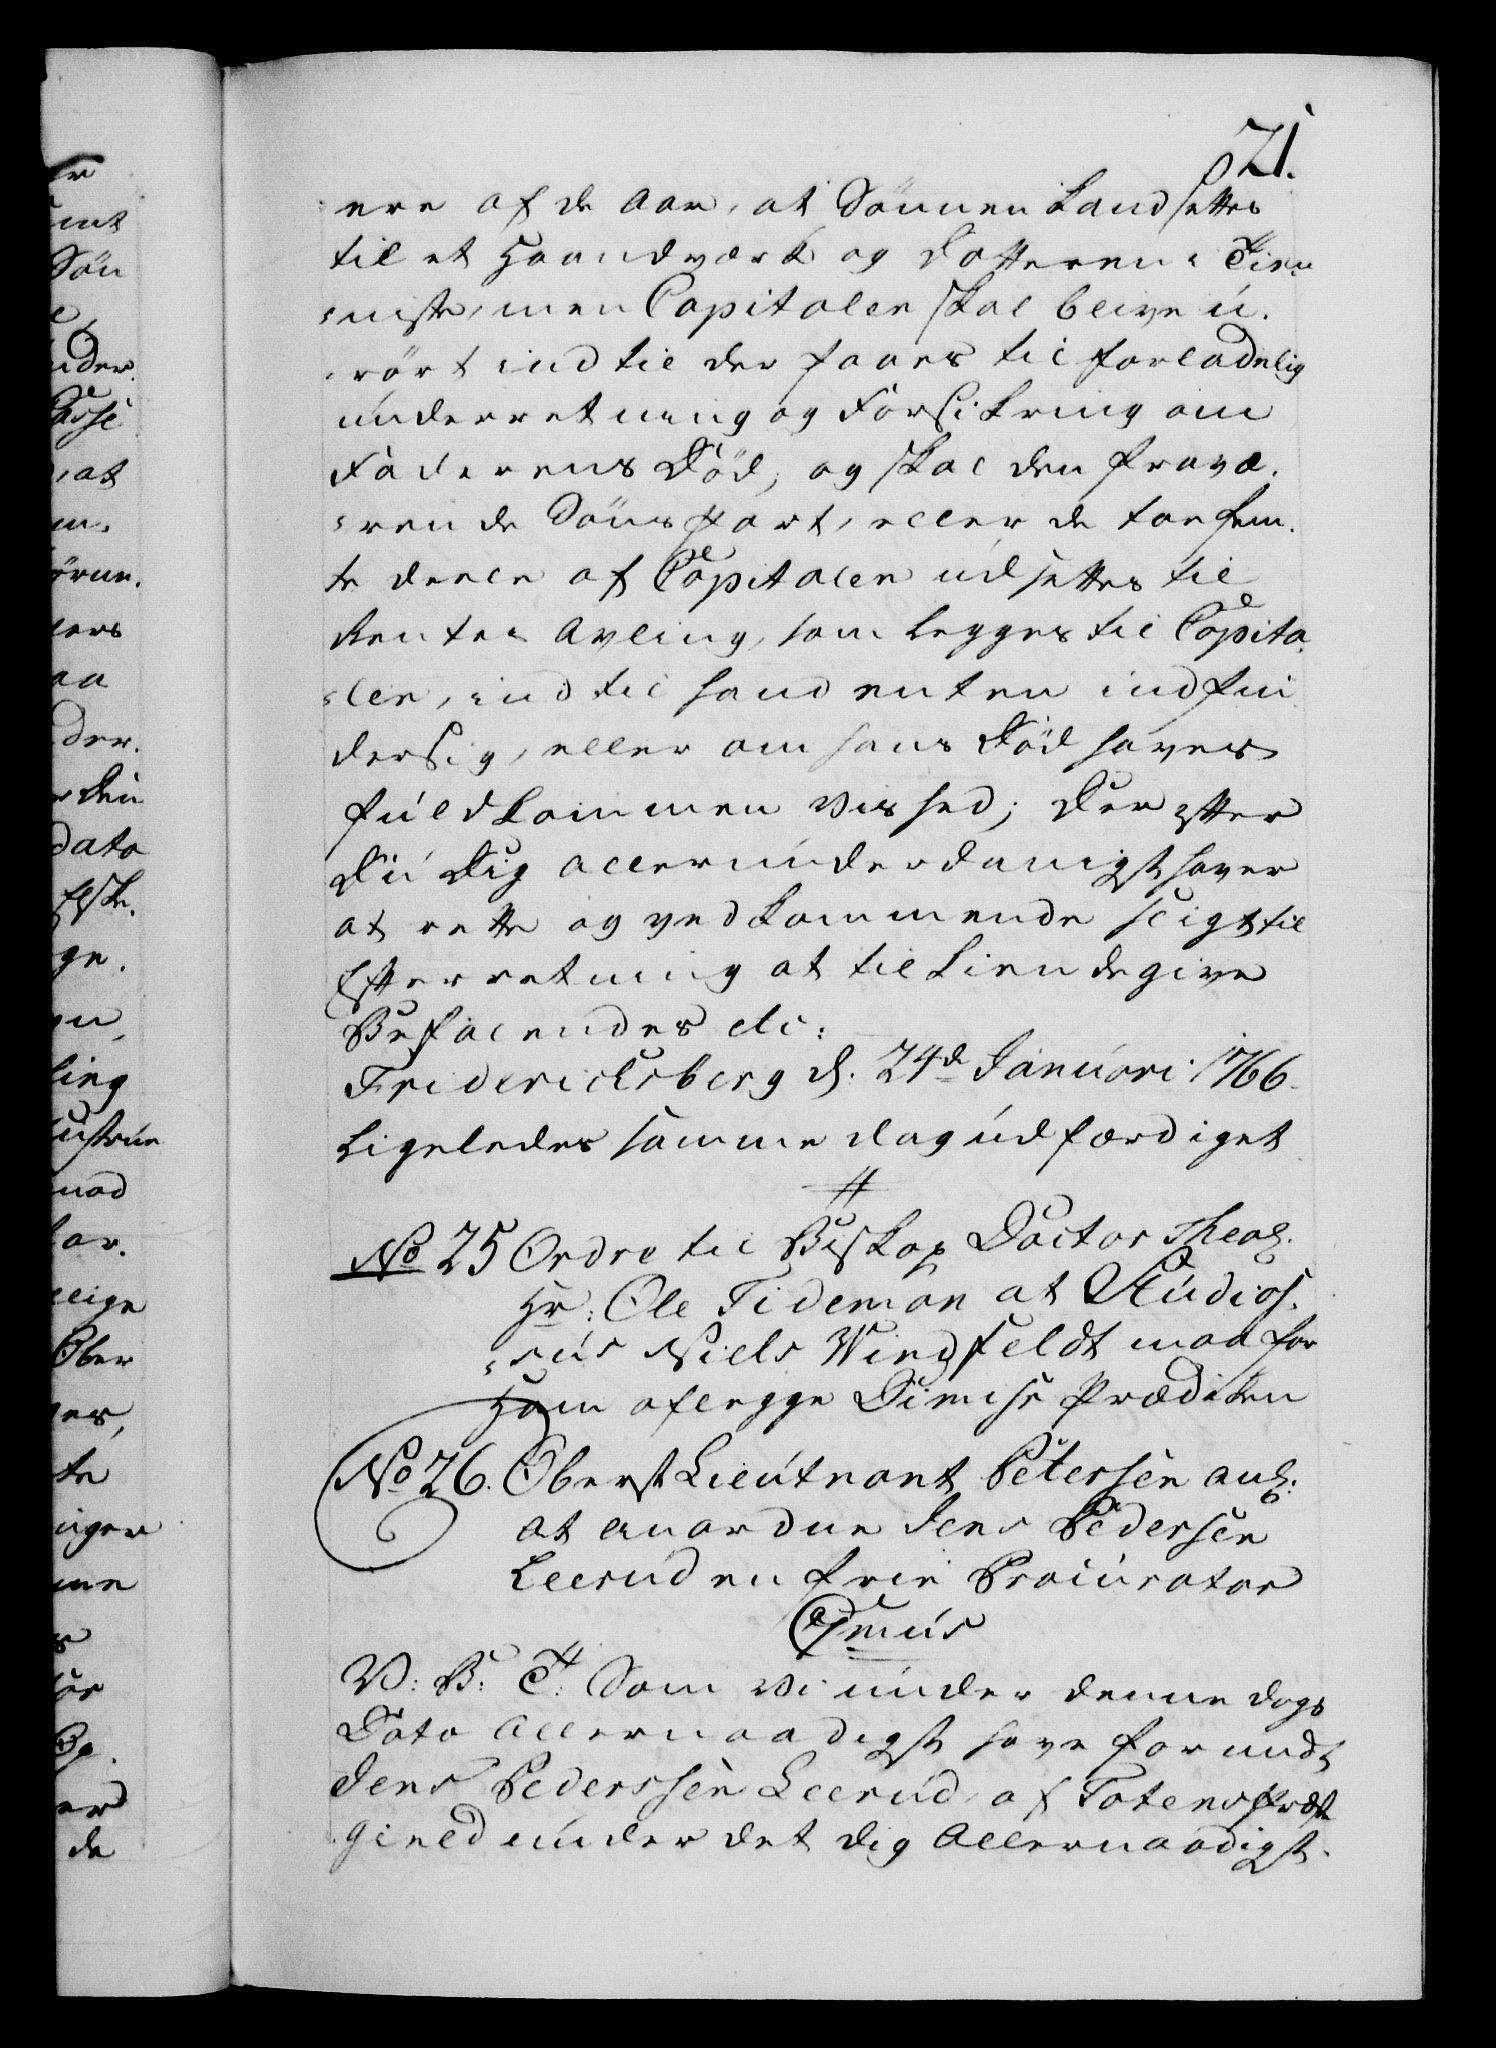 21.
ere af de Aar, at Sönnen kand settes
til et Haandværk og Datteren i Tien-
niste, men Capitalen skal blive u-
rört indtil der faaes tilforladelig
underretning og Forsikring om
Faderens Död, og skal den fravæ-
rende Söns Part, eller de toe fem-
te deele af Capitalen udsettes til
Renters Avling, som legges til Capita-
len, indtil hand enten indfin-
der sig, eller om hans Död haves
fuldkommen Vished; Derefter
Du Dig allerunderdanigst haver
at rette og vedkommende sligt til
Efterretning at tilkiende give
Befalendes etc:
Fridericksberg d. 24de Januari 1766.
Ligeledes samme dag udfærdiget
No 25 Ordre til Biskop Doctor Theol.
Hr: Ole Tideman at Studio-
sus Niels Windfeldt maa for
Ham aflegge Dimiss Prædiken
No 26. Oberst Lieutnant Petersen anl:
at anordne Jens Pedersen
Leerud en frie Procurator
V: B: T: Som Vi under denne Dags
Dato Allernaadigst have forundt
Jens Pederssen Leerud, af Totens Præste
gield under det dig Allernaadigst